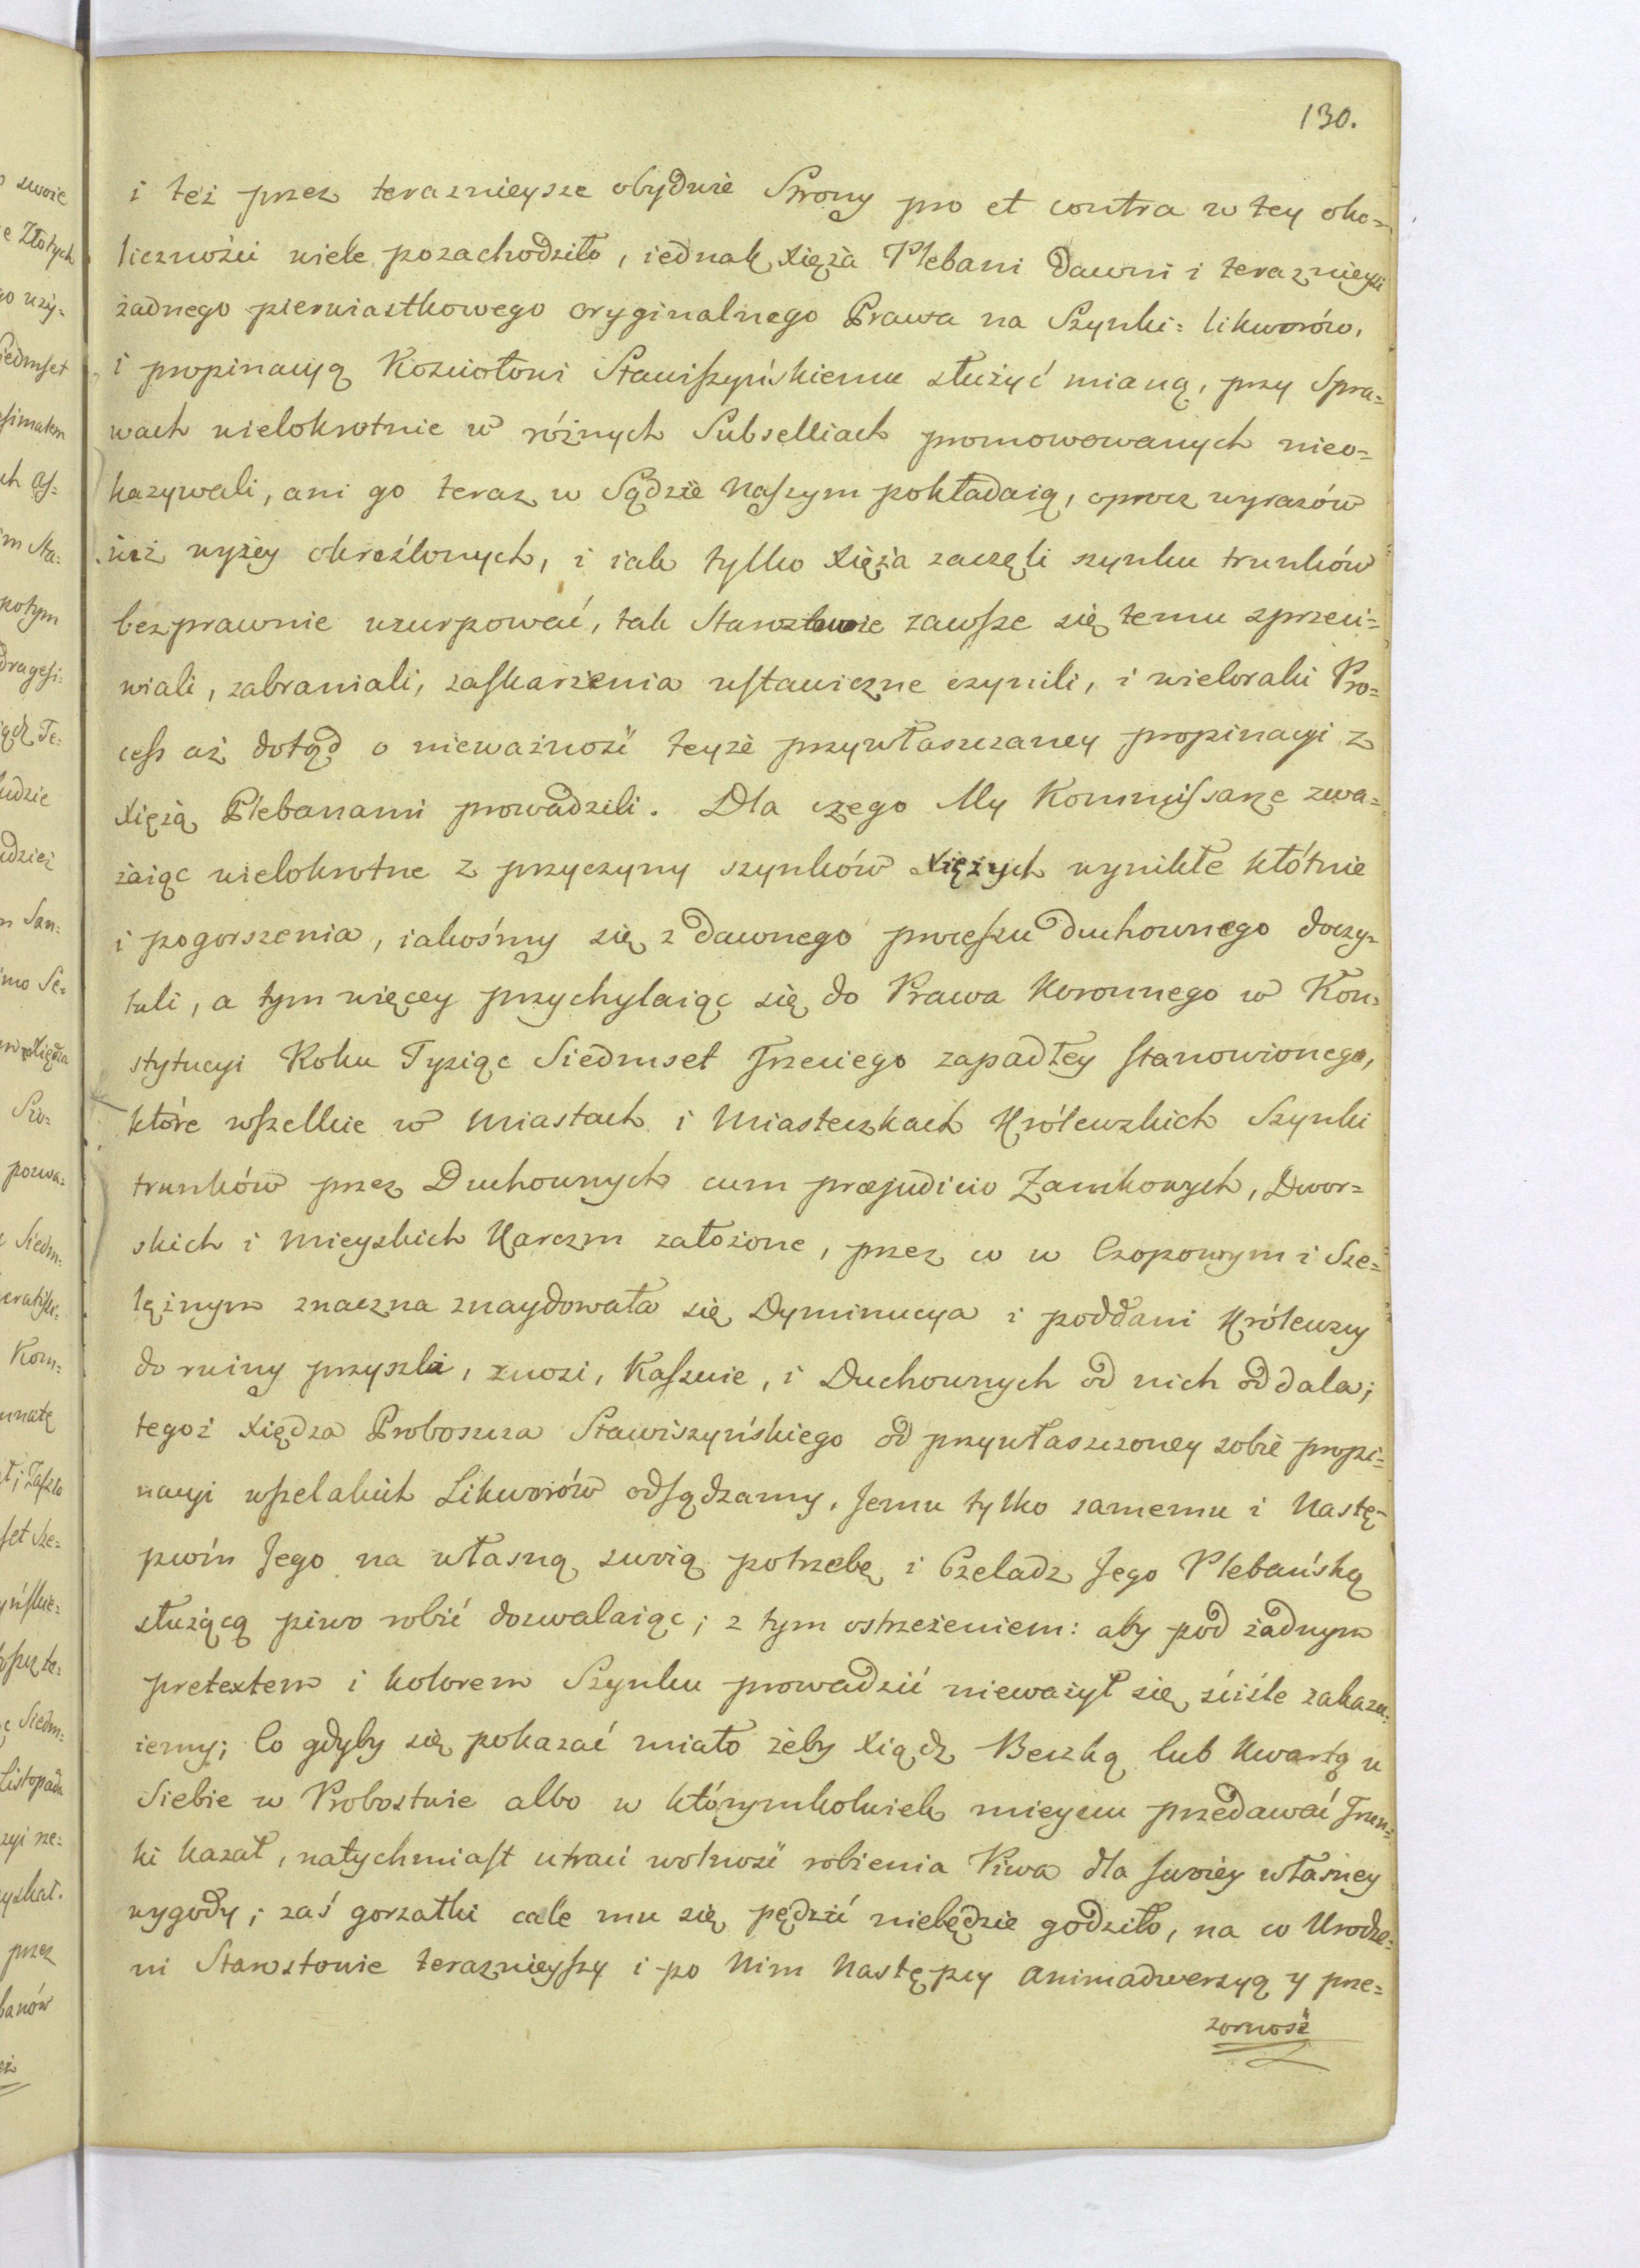 130.
i też przez teraznieysze obydwie Strony pro et contra w tey oko=
licznośći wiele pozachodziło, iednak Xięża Plebani dawni i teraznieysi
żadnego pierwiastkowego oryginalnego Prawa na Szynki: likworów,
i propinacyą Kościołowi Stawiszyńskiemu służyć mianą, przy Spra=
wach wielokrotnie w różnych Subselliach promowowanych nieo=
kazywali, ani go teraz w Sądzie Naszym pokładaią, oprocz wyrazów
iuż wyżey okreźlonych, i iak tylko Xięża zaczęli szynku trunków
bezprawnie uzurpować, tak Starostowie zawsze się temu sprzeci=
wiali, zabraniali, zaskarżenia ustawiczne czynili, i wieloraki Pro=
cess aż dotąd o nieważność teyże przywłaszczaney propinacyi z
Xiężą Plebanami prowadzili. Dla czego My Kommissarze zwa=
żaiąc wielokrotne z przyczyny szynków Xiężych wynikłe kłótnie
i pogorszenia, iakośmy się z dawnego processu duchownego doczy=
tali, a tym więcey przychylaiąc się do Prawa Koronnego w Kon=
stytucyi Roku Tysiąc Siedmset Trzeciego zapadłey stanowionego,
które wszelkie w Miastach i Miasteczkach Królewskich Szynki
trunków przez Duchownych cum præjudicio Zamkowych, Dwor=
skich i Mieyskich Karczm założone, przez co w Czopowym i Sze=
lężnym znaczna znaydowała się Dyminucya i poddani Królewscy
do ruiny przyszli, znosi, Kassuie, i Duchownych od nich oddala;
tegoż Xiędza Proboszcza Stawiszyńskiego od przywłaszczoney sobie propi=
nacyi wszelakich Likworów odsądzamy, Jemu tylko samemu i Nastę=
pcóm Jego na własną swoią potrzebę i Czeladz Jego Plebańską
służącą piwo robić dozwalaiąc; z tym ostrzeżeniem: aby pod żadnym
pretextem i kolorem Szynku prowadzić nieważył się, śćiśle zakazu=
iemy; Co gdyby się pokazać miało żeby Xiądz Beczką lub Kwartą u
Siebie w Probostwie albo w którymkolwiek mieyscu przedawać Trun=
ki kazał, natychmiast utraci wolność robienia Piwa dla swoiey własney
wygody; zaś gorzałki cale mu się pędzić niebędzie godziło, na co Urodze=
ni Starostowie teraznieyszy i po Nim Następcy animadwersyą y prze=
zorność